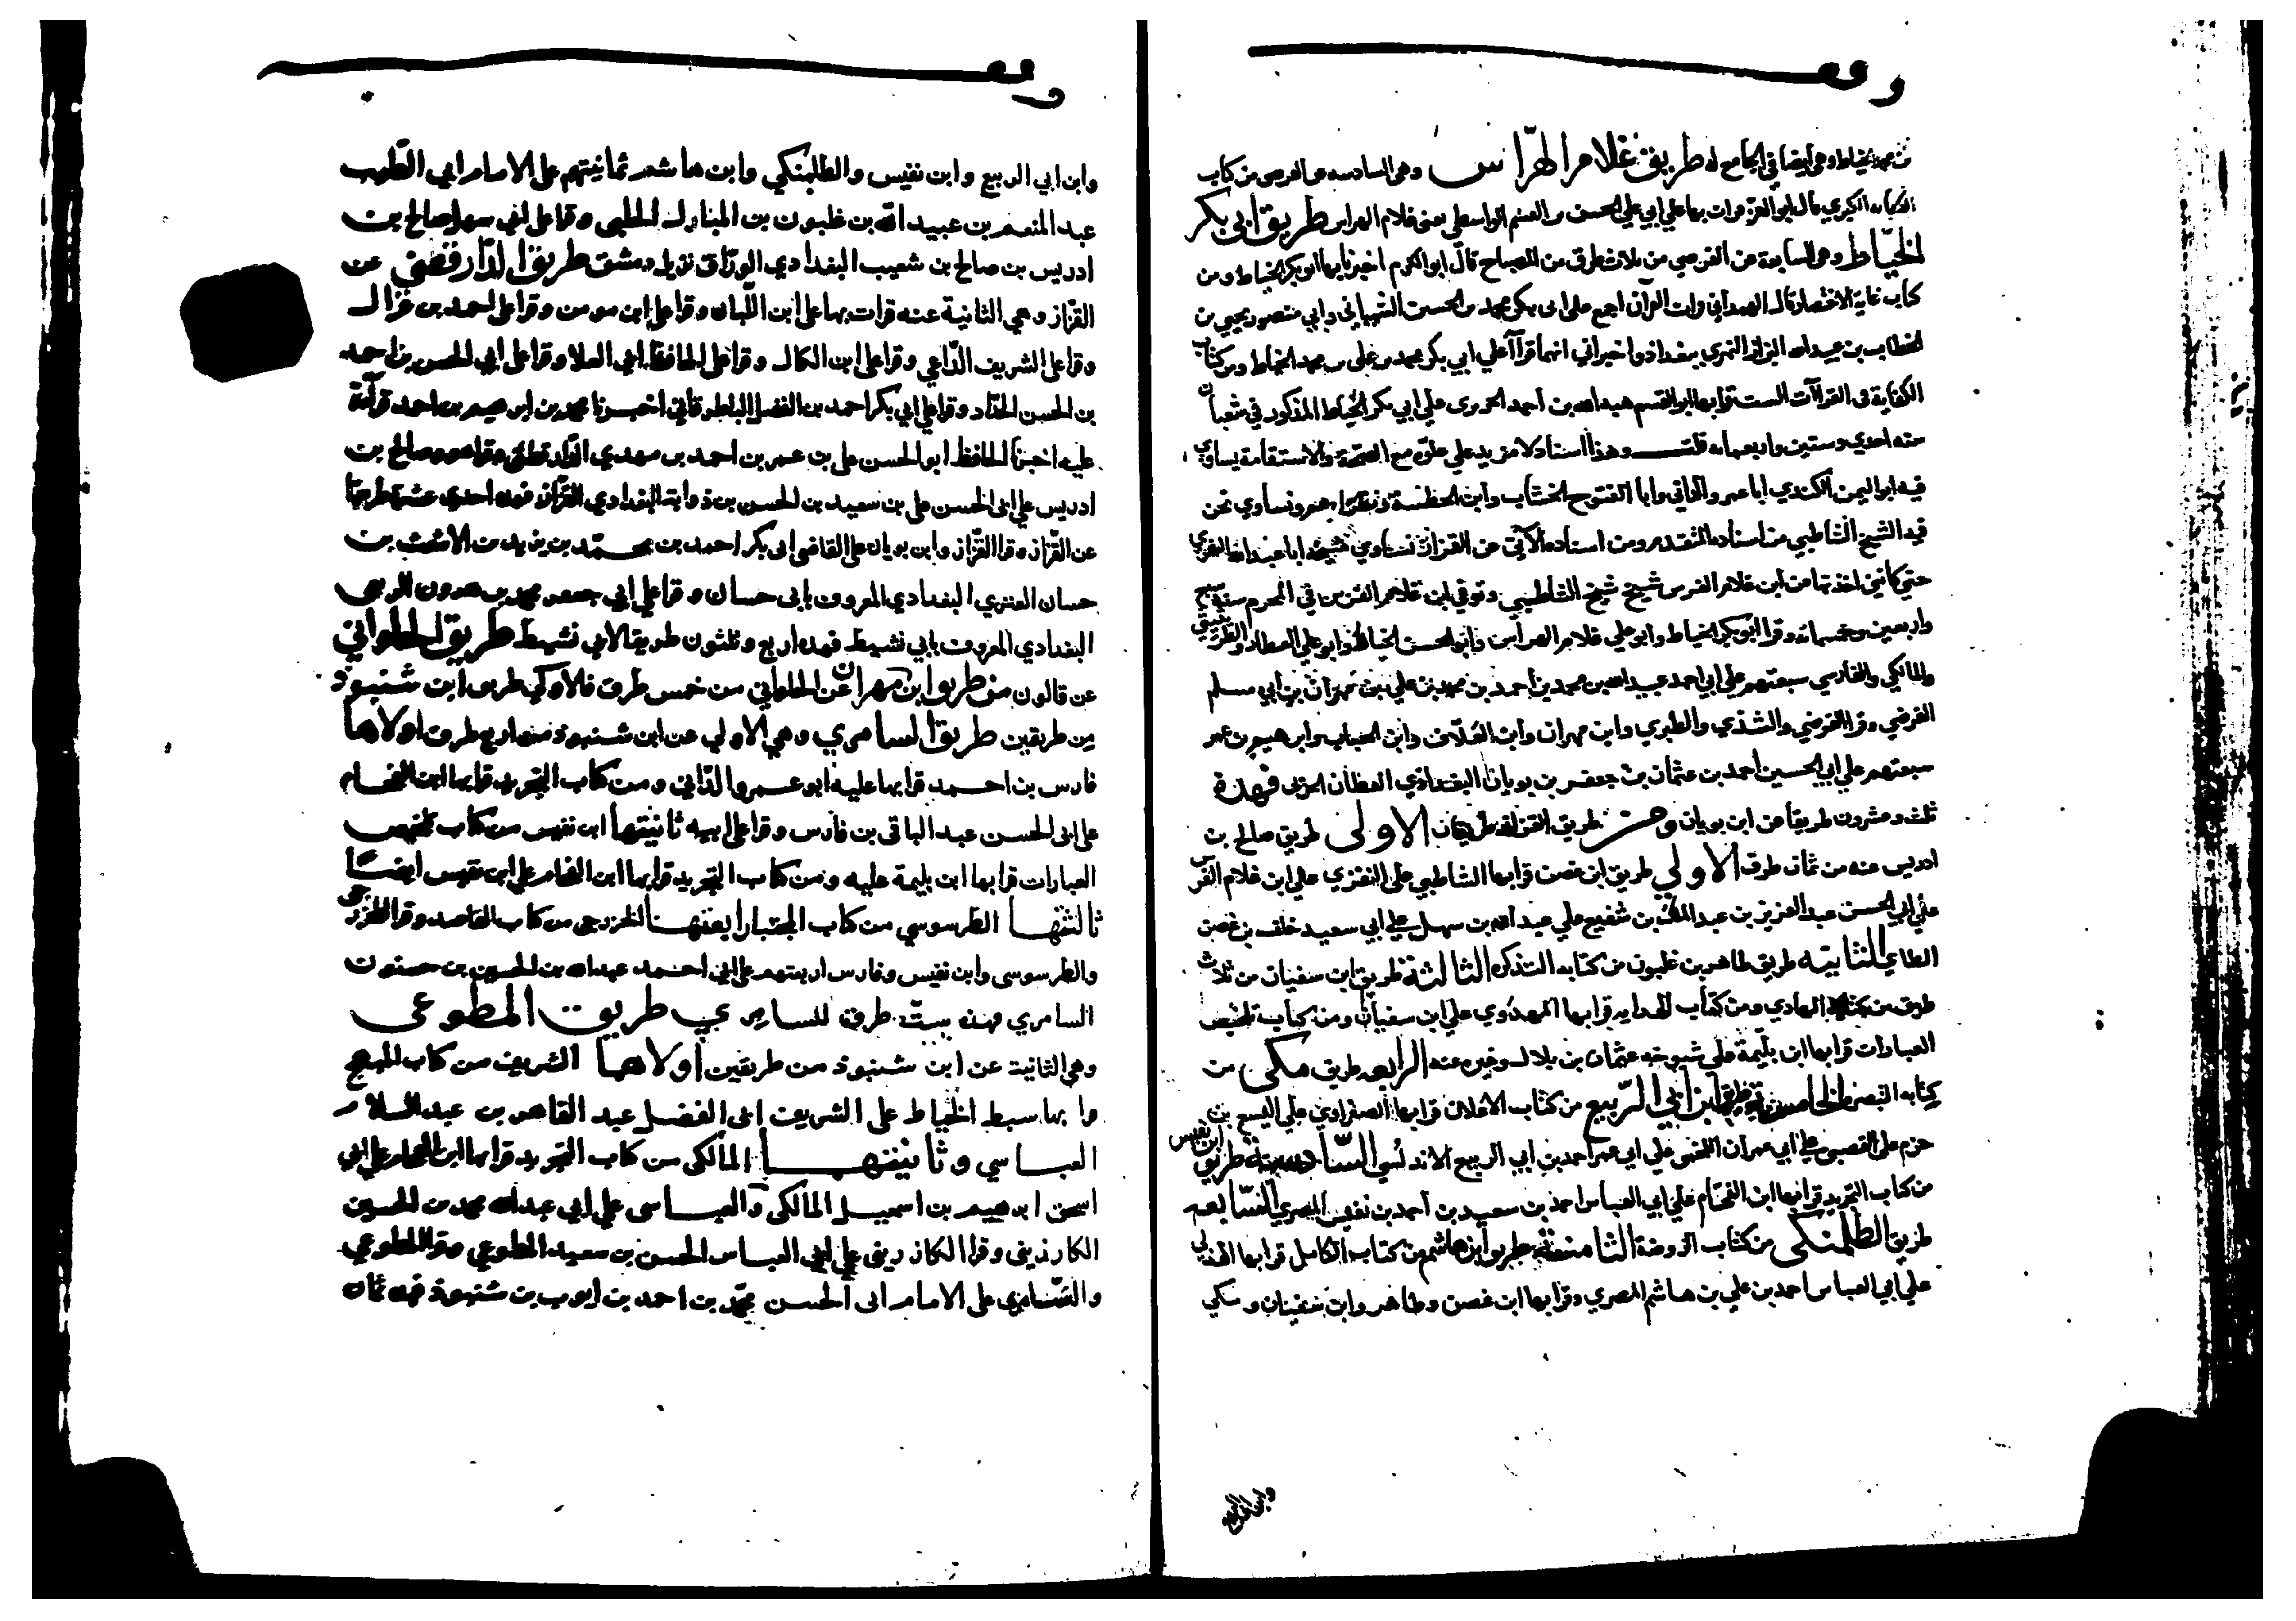 وقف
بن محمد الخياط وهي ايضا في الجامع له طريق غلام الهراس وهي السادسه عن الفرضي من كتاب
الكفايه الكبري قال ابو العز قرات بها علي ابي علي الحسن بن القسم الواسطي يعني غلام الهراس طريق ابي بكر
الخياط وهي السابعة عن الفرضي من ثلاث طرق من المصباح قال ابو الكرم اخبرنا بها ابو بكر الخياط ومن
كتاب غاية الاختصار قال الهمداني قرات القرآن اجمع على ابى بكر محمد بن الحسين الشيباني وابي منصور يحيى بن
الخطاب بن عبيد الله البزاز النهري ببغداد واخبراني انهما قرآ علي ابي بكر محمد بن علي بن محمد الخياط ومن كتاب
الكفاية في القراآت الست قرا بها ابو القسم هبة الله بن احمد الحريري علي ابي بكر الخياط المذكور في شعبان
سنه احدي وستين واربعمايه قلت وهذا اسناد لا مزيد علي علوه مع الصحة والاستقامة يساوي
فيه ابو اليمن الكندي ابا عمرو الداني وابا الفتوح الخشاب وابن الحطئة ونظراءهم ونساوي نحن
فيه الشيخ الشاطبي من اسناده المتقدم ومن اسناده الآتي عن القزاز نساوي شيخه ابا عبد الله النفزي
حتي كانني اخذتها عن ابن غلام الفرس شيخ شيخ الشاطبي وتوفي ابن غلام الفرس في المحرم سنة سبع
واربعين وخمسمائه وقرا ابو بكر الخياط وابو علي غلام الهراس وابو الحسن الخياط وابو علي العطار والطريثيثي
والمالكي والفارسي سبعتهم علي ابي احمد عبيد الله بن محمد بن احمد بن محمد بن علي بن مهران بن ابي مسلم
الفرضي وقرا الفرضي والشذي والطبري وابن مهران وابن العلاف وابن الحباب وابراهيم بن عمر
سبعتهم علي ابي الحسين احمد بن عثمان بن جعفر بن بويان البغدادي القطان الحربي فهذه
ثلث وعشرون طريقا عن ابن بويان ومن طريق القزاز طريقان الاولى طريق صالح بن
ادريس عنه من ثمان طرق الاولي طريق ابن غصن قرا بها الشاطبي على النفزي علي ابن غلام الفرس
علي ابي الحسن عبد العزيز بن عبد الملك بن شفيع علي عبد الله بن سهل علي ابي سعيد خلف بن غصن
الطاي الثانيه طريق طاهر بن غلبون من كتابه التذكره الثالثة طريق ابن سفيان من ثلاث
طرق من كتابه الهادي ومن كتاب الهدايه قرا بها المهدوي علي ابن سفيان ومن كتاب تلخيص
العبارات قرا بها ابن بليمة علي شيوخه عثمان بن بلال وغيره عنه الرابعه طريق مكي من
كتابه التبصرة الخامسة طريق ابن ابي الربيع من كتاب الاعلان قرا بها الصفراوي علي اليسع بن
حزم علي القصبي علي ابي عمران اللخمي علي ابي عمر احمد بن ابي الربيع الاندلسي السادسة طريق ابن نفيس
من كتاب التجريد قرا بها ابن الفحام علي ابي العباس احمد بن سعيد بن احمد بن نفيس المصري السابعه
طريق الطلمنكي من كتاب الروضة الثامنة طريق ابن هاشم من كتاب الكامل قرا بها الهذلي
علي ابي العباس احمد بن علي بن هاشم المصري وقرا بها ابن غصن وطاهر وابن سفيان ومكي
وقف
وابن ابي الربيع وابن نفيس والطلمنكي وابن هاشم ثمانيتهم على الامام ابي الطيب
عبد المنعم بن عبيد الله بن غلبون بن المبارك الحلبي وقرا على ابي سهل صالح بن
ادريس بن صالح بن شعيب البغدادي الوراق نزيل دمشق طريق الدارقطني عن
القزاز وهي الثانية عنه قرات بها على ابن اللبان وقرا على ابن مومن وقرا على احمد بن غزال
وقرا على الشريف الداعي وقرا على ابن الكال وقرا على الحافظ ابي العلا وقرا على ابي الحسن بن احمد
بن الحسن الحداد وقرا علي ابي بكر احمد بن الفضل الباطرقاني اخبرنا محمد بن ابرهيم بن احمد قرآة
عليه اخبرنا الحافظ ابو الحسن علي بن عمر بن احمد بن مهدي الدارقطني وقرا هو وصالح بن
ادريس علي ابي الحسن علي بن سعيد بن الحسن بن ذوابة البغدادي القزاز فهذه احدي عشرة طريقا
عن القزاز وقرا القزاز وابن بويان على القاضي ابى بكر احمد بن محمد بن يزيد بن الاشعث بن
حسان العنزي البغدادي المعروف بابى حسان وقرا علي ابي جعفر محمد بن هرون الربعي
البغدادي المعروف بابي نشيط فهذه اربع وثلثون طريقا لابي نشيط طريق الحلواني
عن قالون من طريق ابن مهران عن الحلواني من خمس طرق فالاولي طريق ابن شنبوذ
من طريقين طريق السامري وهي الاولي عن ابن شنبوذ منه اربع طرق اولاها
فارس بن احمد قرا بها عليه ابو عمرو الداني ومن كتاب التجريد قرا بها ابن الفحام
على ابى الحسن عبد الباقي بن فارس وقرا على ابيه ثانيتها ابن نفيس من كتاب تلخيص
العبارات قرا بها ابن بليمة عليه ومن كتاب التجريد قرا بها ابن الفحام علي ابن نفيس ايضا
ثالثتها الطرسوسي من كتاب المجتبا رابعتها الخزرجي من كتاب القاصد وقرا الخزرجي
والطرسوسى وابن نفيس وفارس اربعتهم على ابي احمد عبد الله بن الحسين بن حسنون
السامري فهذه ست طرق للسامري طريق المطوعي
وهي الثانية عن ابن شنبوذ من طريقين اولاها الشريف من كتاب المبهج
قرا بها سبط الخياط على الشريف ابى الفضل عبد القاهر بن عبد السلام
العباسي وثانيتها المالكي من كتاب التجريد قرا بها ابن الفحام علي ابي
اسحق ابرهيم بن اسمعيل المالكى والعباسى علي ابي عبد الله محمد بن الحسين
الكارزيني وقرا الكارزيني علي ابي العباس الحسن بن سعيد المطوعي وقرا المطوعي
والسامري على الامام ابى الحسن محمد بن احمد بن ايوب بن شنبوذ فهذه ثمان